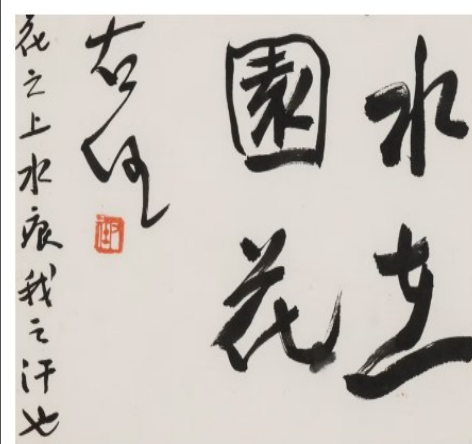 水在
園花
右任
花之上水痕我之汗也